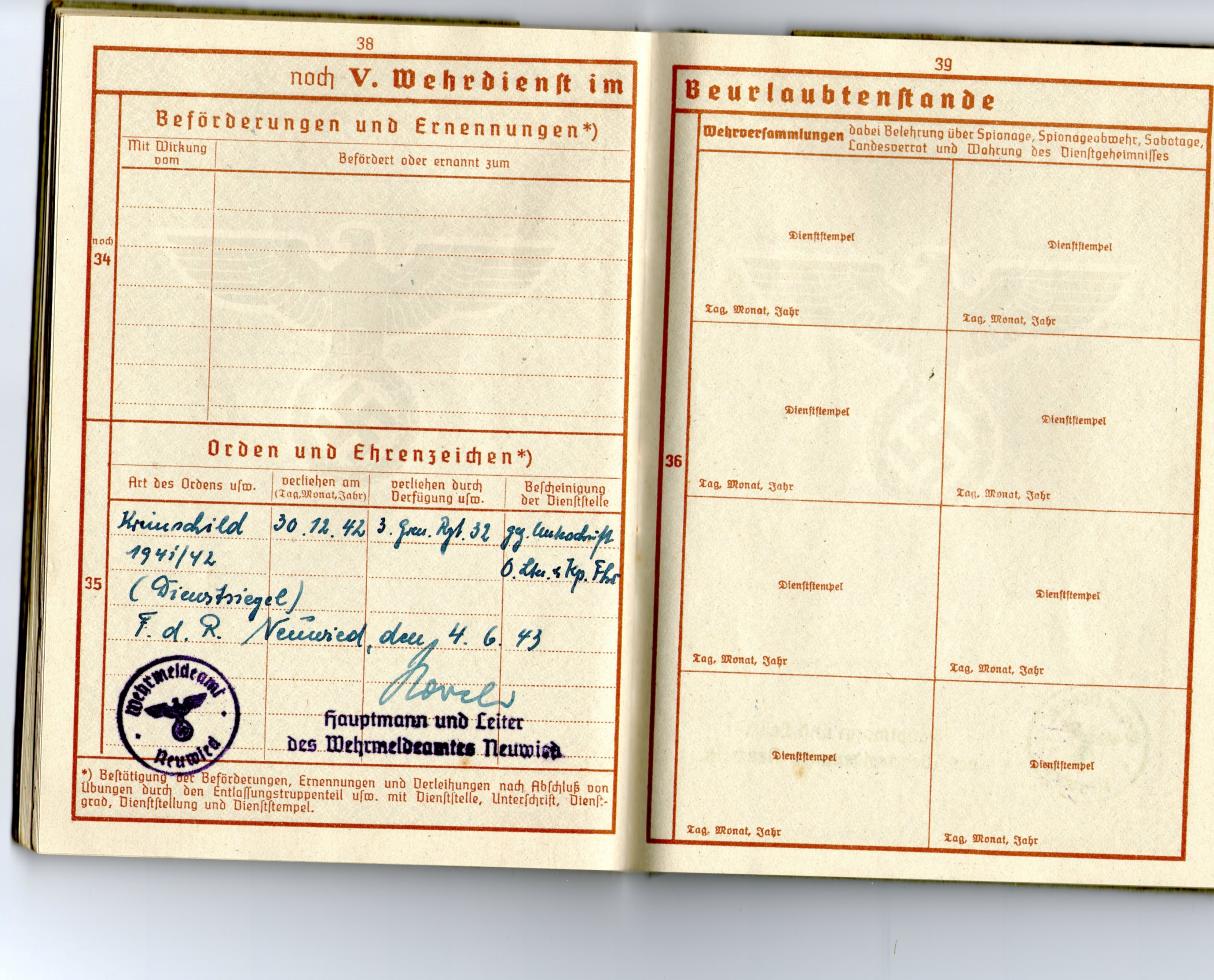 38
noch V. Wehrdienst im
Beförderungen und Ernennungen*)
Mit Wirkung vom
Befördert oder ernannt zum
noch
34
Orden und Ehrenzeichen*)
Art des Ordens usw.
verliehen am
(Tag, Monat, Jahr)
verliehen durch
Verfügung usw.
Bescheinigung
der Dienststelle
35
Krimschild 30.12.42 3. Gren. Rgt. 32 gez. Unterschrift
1941/42 O.Ltn. u. Kp. Fhr
(Dienstsiegel)
F. d. R. Neuwied, den 4. 6. 43
Wehrmeldeamt
Neuwied
Hauptmann und Leiter
des Wehrmeldeamtes Neuwied
*) Bestätigung der Beförderungen, Ernennungen und Verleihungen nach Abschluß von
Übungen durch den Entlassungstruppenteil usw. mit Dienststelle, Unterschrift, Dienst-
grad, Dienststellung und Dienststempel.
39
Beurlaubtenstande
Wehrversammlungen dabei Belehrung über Spionage, Spionageabwehr, Sabotage,
Landesverrat und Wahrung des Dienstgeheimnisses
36
Dienststempel
Dienststempel
Tag, Monat, Jahr
Tag, Monat, Jahr
Dienststempel
Dienststempel
Tag, Monat, Jahr
Tag, Monat, Jahr
Dienststempel
Dienststempel
Tag, Monat, Jahr
Tag, Monat, Jahr
Dienststempel
Dienststempel
Tag, Monat, Jahr
Tag, Monat, Jahr